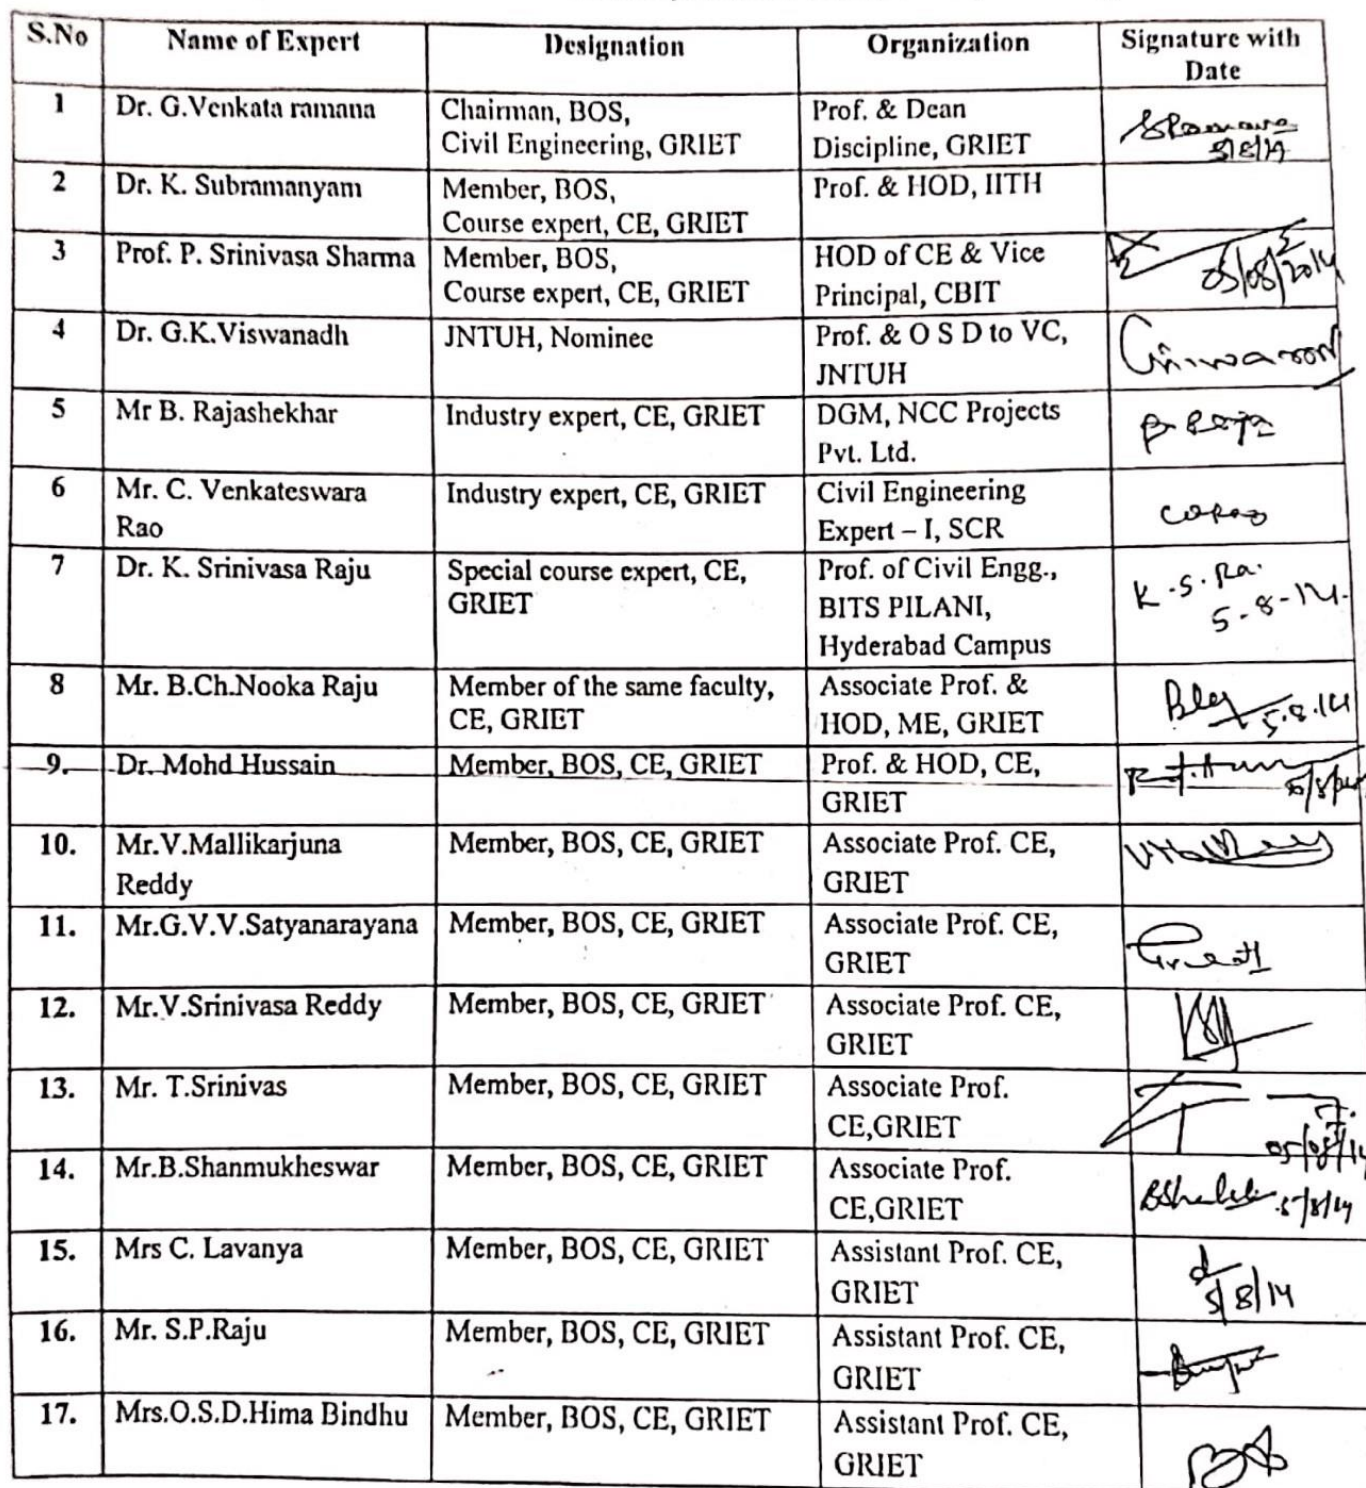 S.No Name of Expert Designation Organization Signature with
Date
1 Dr. G.Venkata ramana Chairman, BOS, Prof. & Dean
Civil Engineering, GRIET Discipline, GRIET
5/8/14
2 Dr. K. Subramanyam Member, BOS, Prof. & HOD, IITH
Course expert, CE, GRIET
3 Prof. P. Srinivasa Sharma Member, BOS, HOD of CE & Vice
Course expert, CE, GRIET Principal, CBIT 05/08/2014
4 Dr. G.K.Viswanadh JNTUH, Nominee Prof. & O S D to VC,
JNTUH
5 Mr B. Rajashekhar Industry expert, CE, GRIET DGM, NCC Projects
Pvt. Ltd.
6 Mr. C. Venkateswara Industry expert, CE, GRIET Civil Engineering
Rao Expert – I, SCR
7 Dr. K. Srinivasa Raju Special course expert, CE, Prof. of Civil Engg., K.S.Ra.
GRIET BITS PILANI, 5-8-14.
Hyderabad Campus
8 Mr. B.Ch.Nooka Raju Member of the same faculty, Associate Prof. &
CE, GRIET HOD, ME, GRIET 5.8.14
9. Dr. Mohd Hussain Member, BOS, CE, GRIET Prof. & HOD, CE,
GRIET
10. Mr.V.Mallikarjuna Member, BOS, CE, GRIET Associate Prof. CE,
Reddy GRIET
11. Mr.G.V.V.Satyanarayana Member, BOS, CE, GRIET Associate Prof. CE,
GRIET
12. Mr.V.Srinivasa Reddy Member, BOS, CE, GRIET Associate Prof. CE,
GRIET
13. Mr. T.Srinivas Member, BOS, CE, GRIET Associate Prof.
CE,GRIET
05/08/14
14. Mr.B.Shanmukheswar Member, BOS, CE, GRIET Associate Prof.
CE,GRIET 5/8/14
15. Mrs C. Lavanya Member, BOS, CE, GRIET Assistant Prof. CE,
GRIET 5/8/14
16. Mr. S.P.Raju Member, BOS, CE, GRIET Assistant Prof. CE,
GRIET
17. Mrs.O.S.D.Hima Bindhu Member, BOS, CE, GRIET Assistant Prof. CE,
GRIET